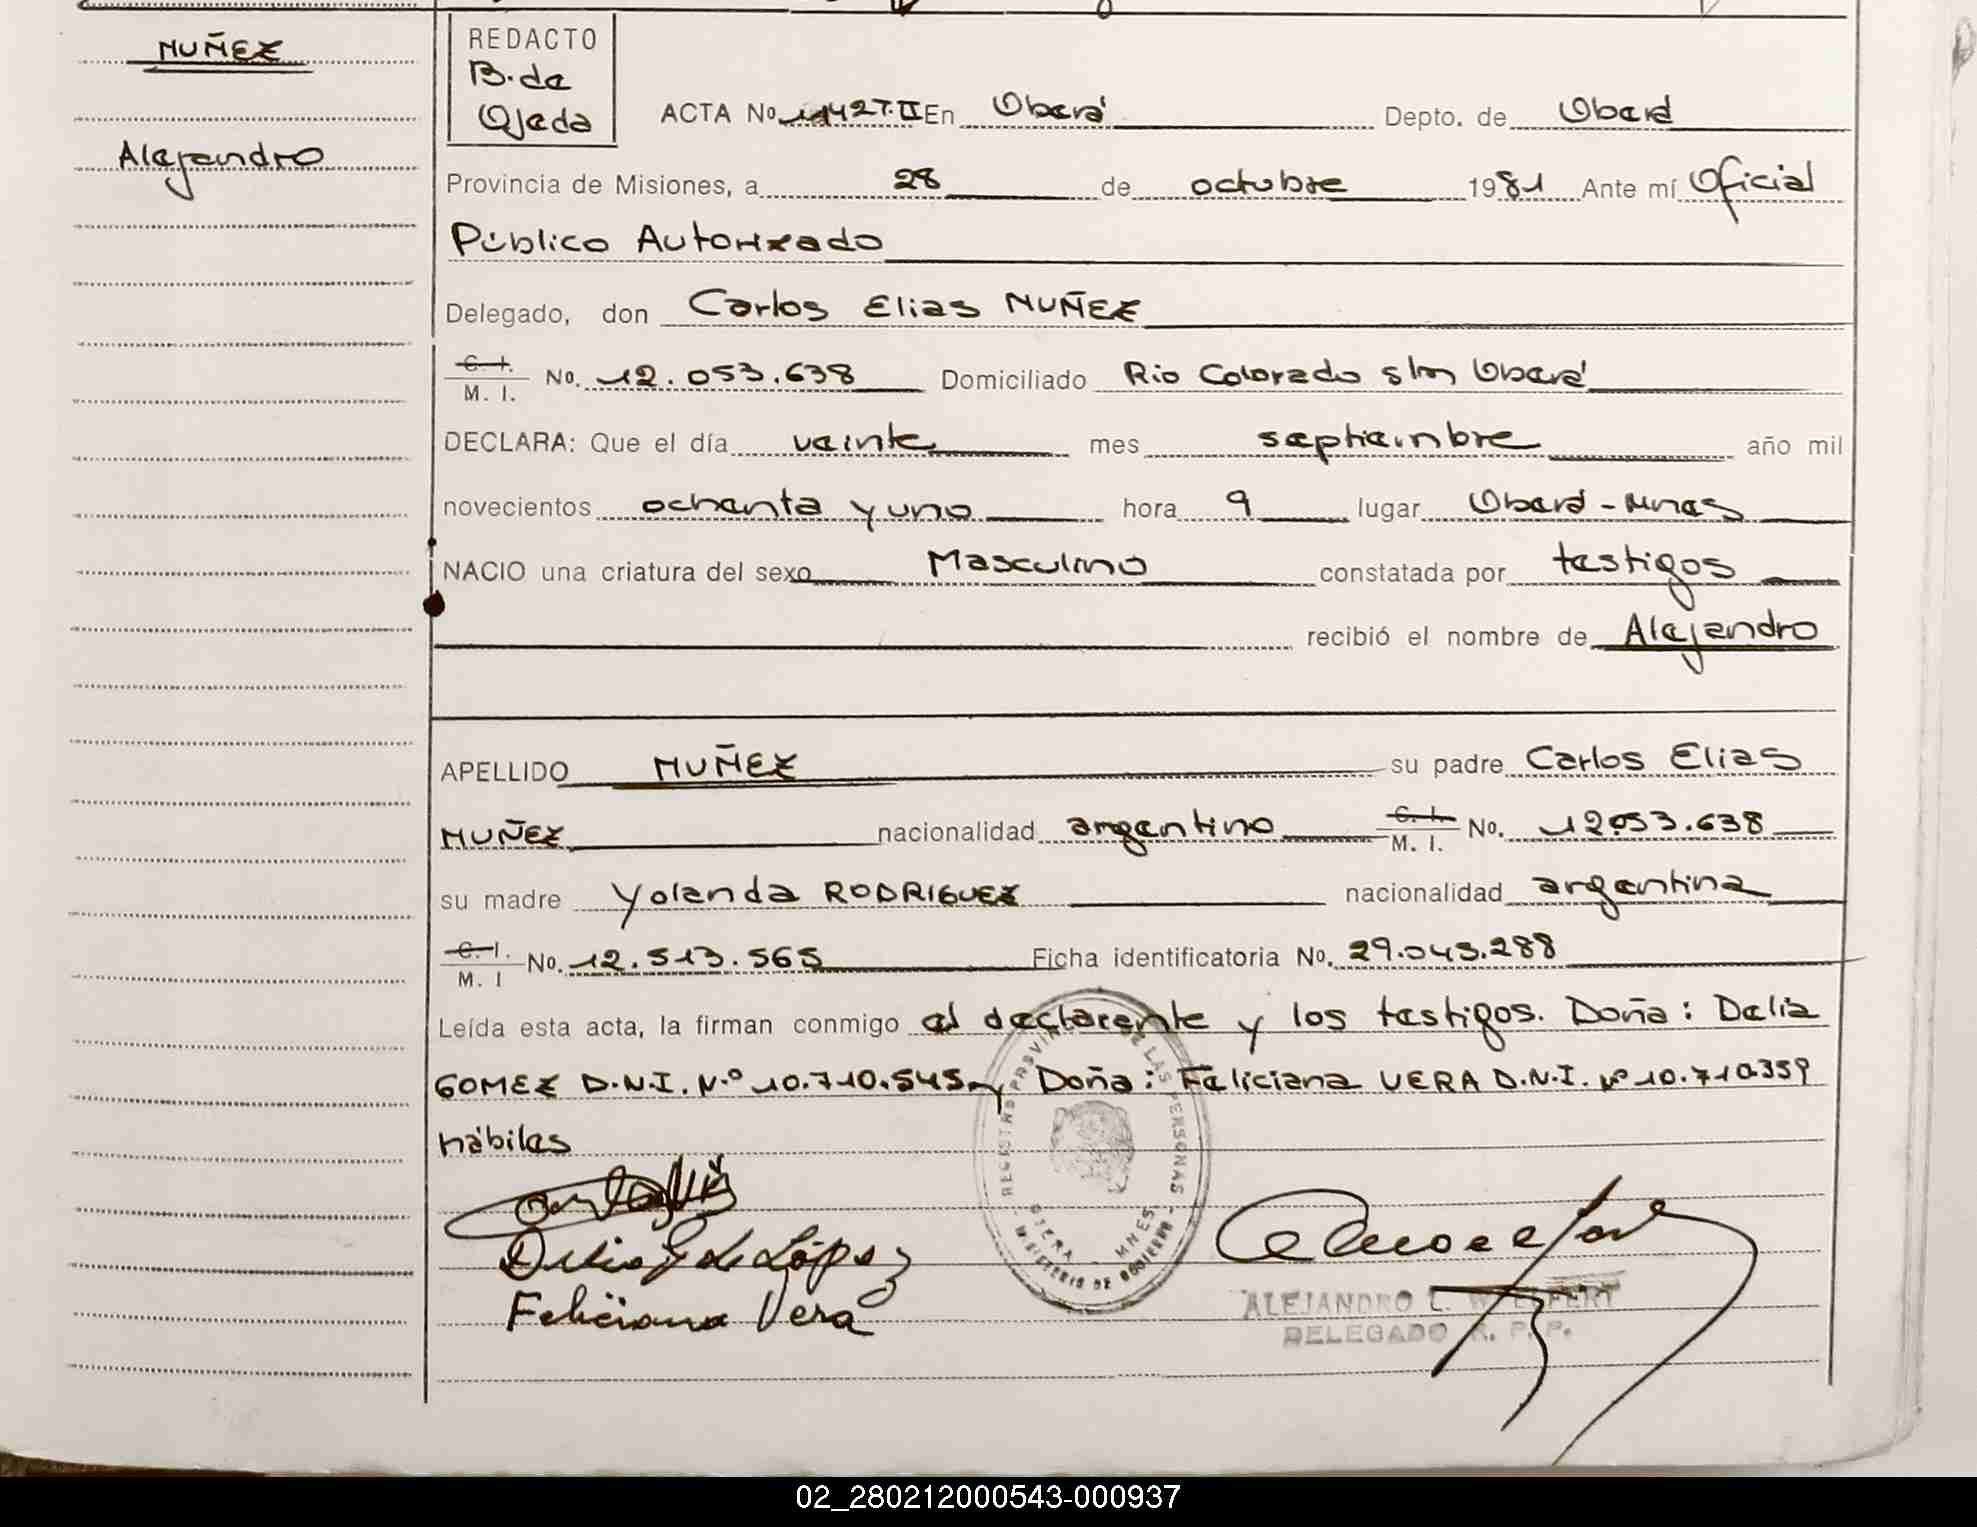 NUÑEZ
Alejandro
REDACTO
B. de
Ojeda
ACTA No 1142 T. II En Oberá Depto. de Oberá
Provincia de Misiones, a 28 de octubre 1981 Ante mí Oficial
Público Autorizado
Delegado, don Carlos Elias NUÑEZ
C. I.
M. I. No. 12.053.638 Domiciliado Rio Colorado s/m Oberá
DECLARA: Que el día veinte mes septiembre año mil
novecientos ochenta y uno hora 9 lugar Oberá - Mnes
NACIO una criatura del sexo Masculino constatada por testigos
recibió el nombre de Alejandro
APELLIDO NUÑEZ su padre Carlos Elias
NUÑEZ nacionalidad argentino C. I. M. I. No. 12053.638
su madre Yolanda RODRIGUEZ nacionalidad argentina
C. I.
M. I No. 12.513.565 Ficha identificatoria No. 29.043.288
Leída esta acta, la firman conmigo el declarante y los testigos. Doña: Delia
GOMEZ D.N.I. N.º 10.710.545 y Doña: Feliciana VERA D.N.I. Nº 10.710359
hábiles
REGISTRO PROVINCIAL DE LAS PERSONAS
OBERA - MNES.
MINISTERIO DE GOBIERNO
Delia G de López
Feliciana Vera
ALEJANDRO L.
DELEGADO R. P. P.
02_280212000543-000937